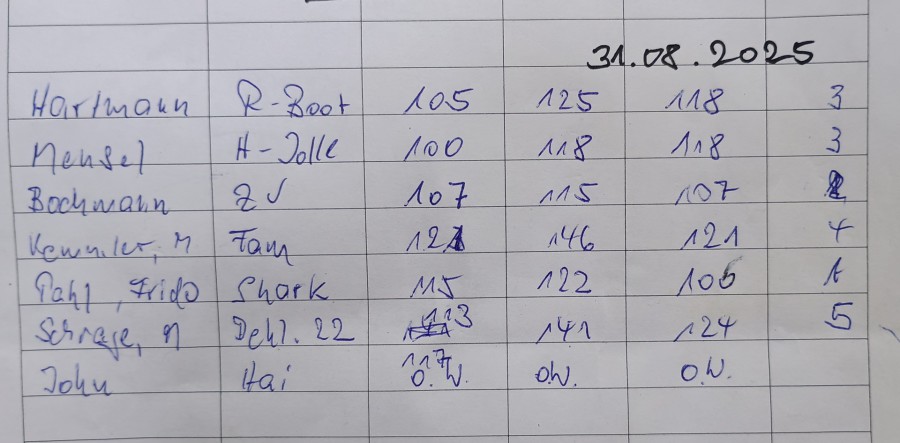 31.08.2025
Hartmann R-Boot 105 125 118 3
Mensel H-Jolle 100 118 118 3
Bochmann ZV 107 115 107 2
Kemmler, M Fam 121 146 121 4
Pahl, Frido Shark 115 122 106 1
Schrage, M Dehl. 22 113 141 124 5
117
John Hai O.W. O.W. O.W.